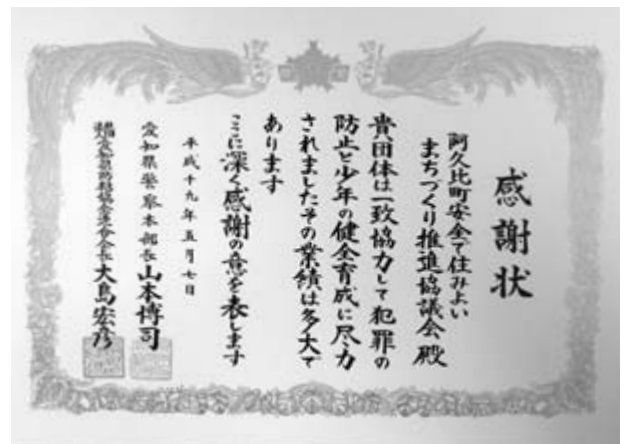 感謝状
阿久比町安全で住みよい
まちづくり推進協議会 殿
貴団体は一致協力して犯罪の
防止と少年の健全育成に尽力
されましたその業績は多大で
あります
ここに深く感謝の意を表します
平成十九年五月七日
愛知県警察本部長 山本博司
愛知県防犯協会連合会会長 大島宏彦